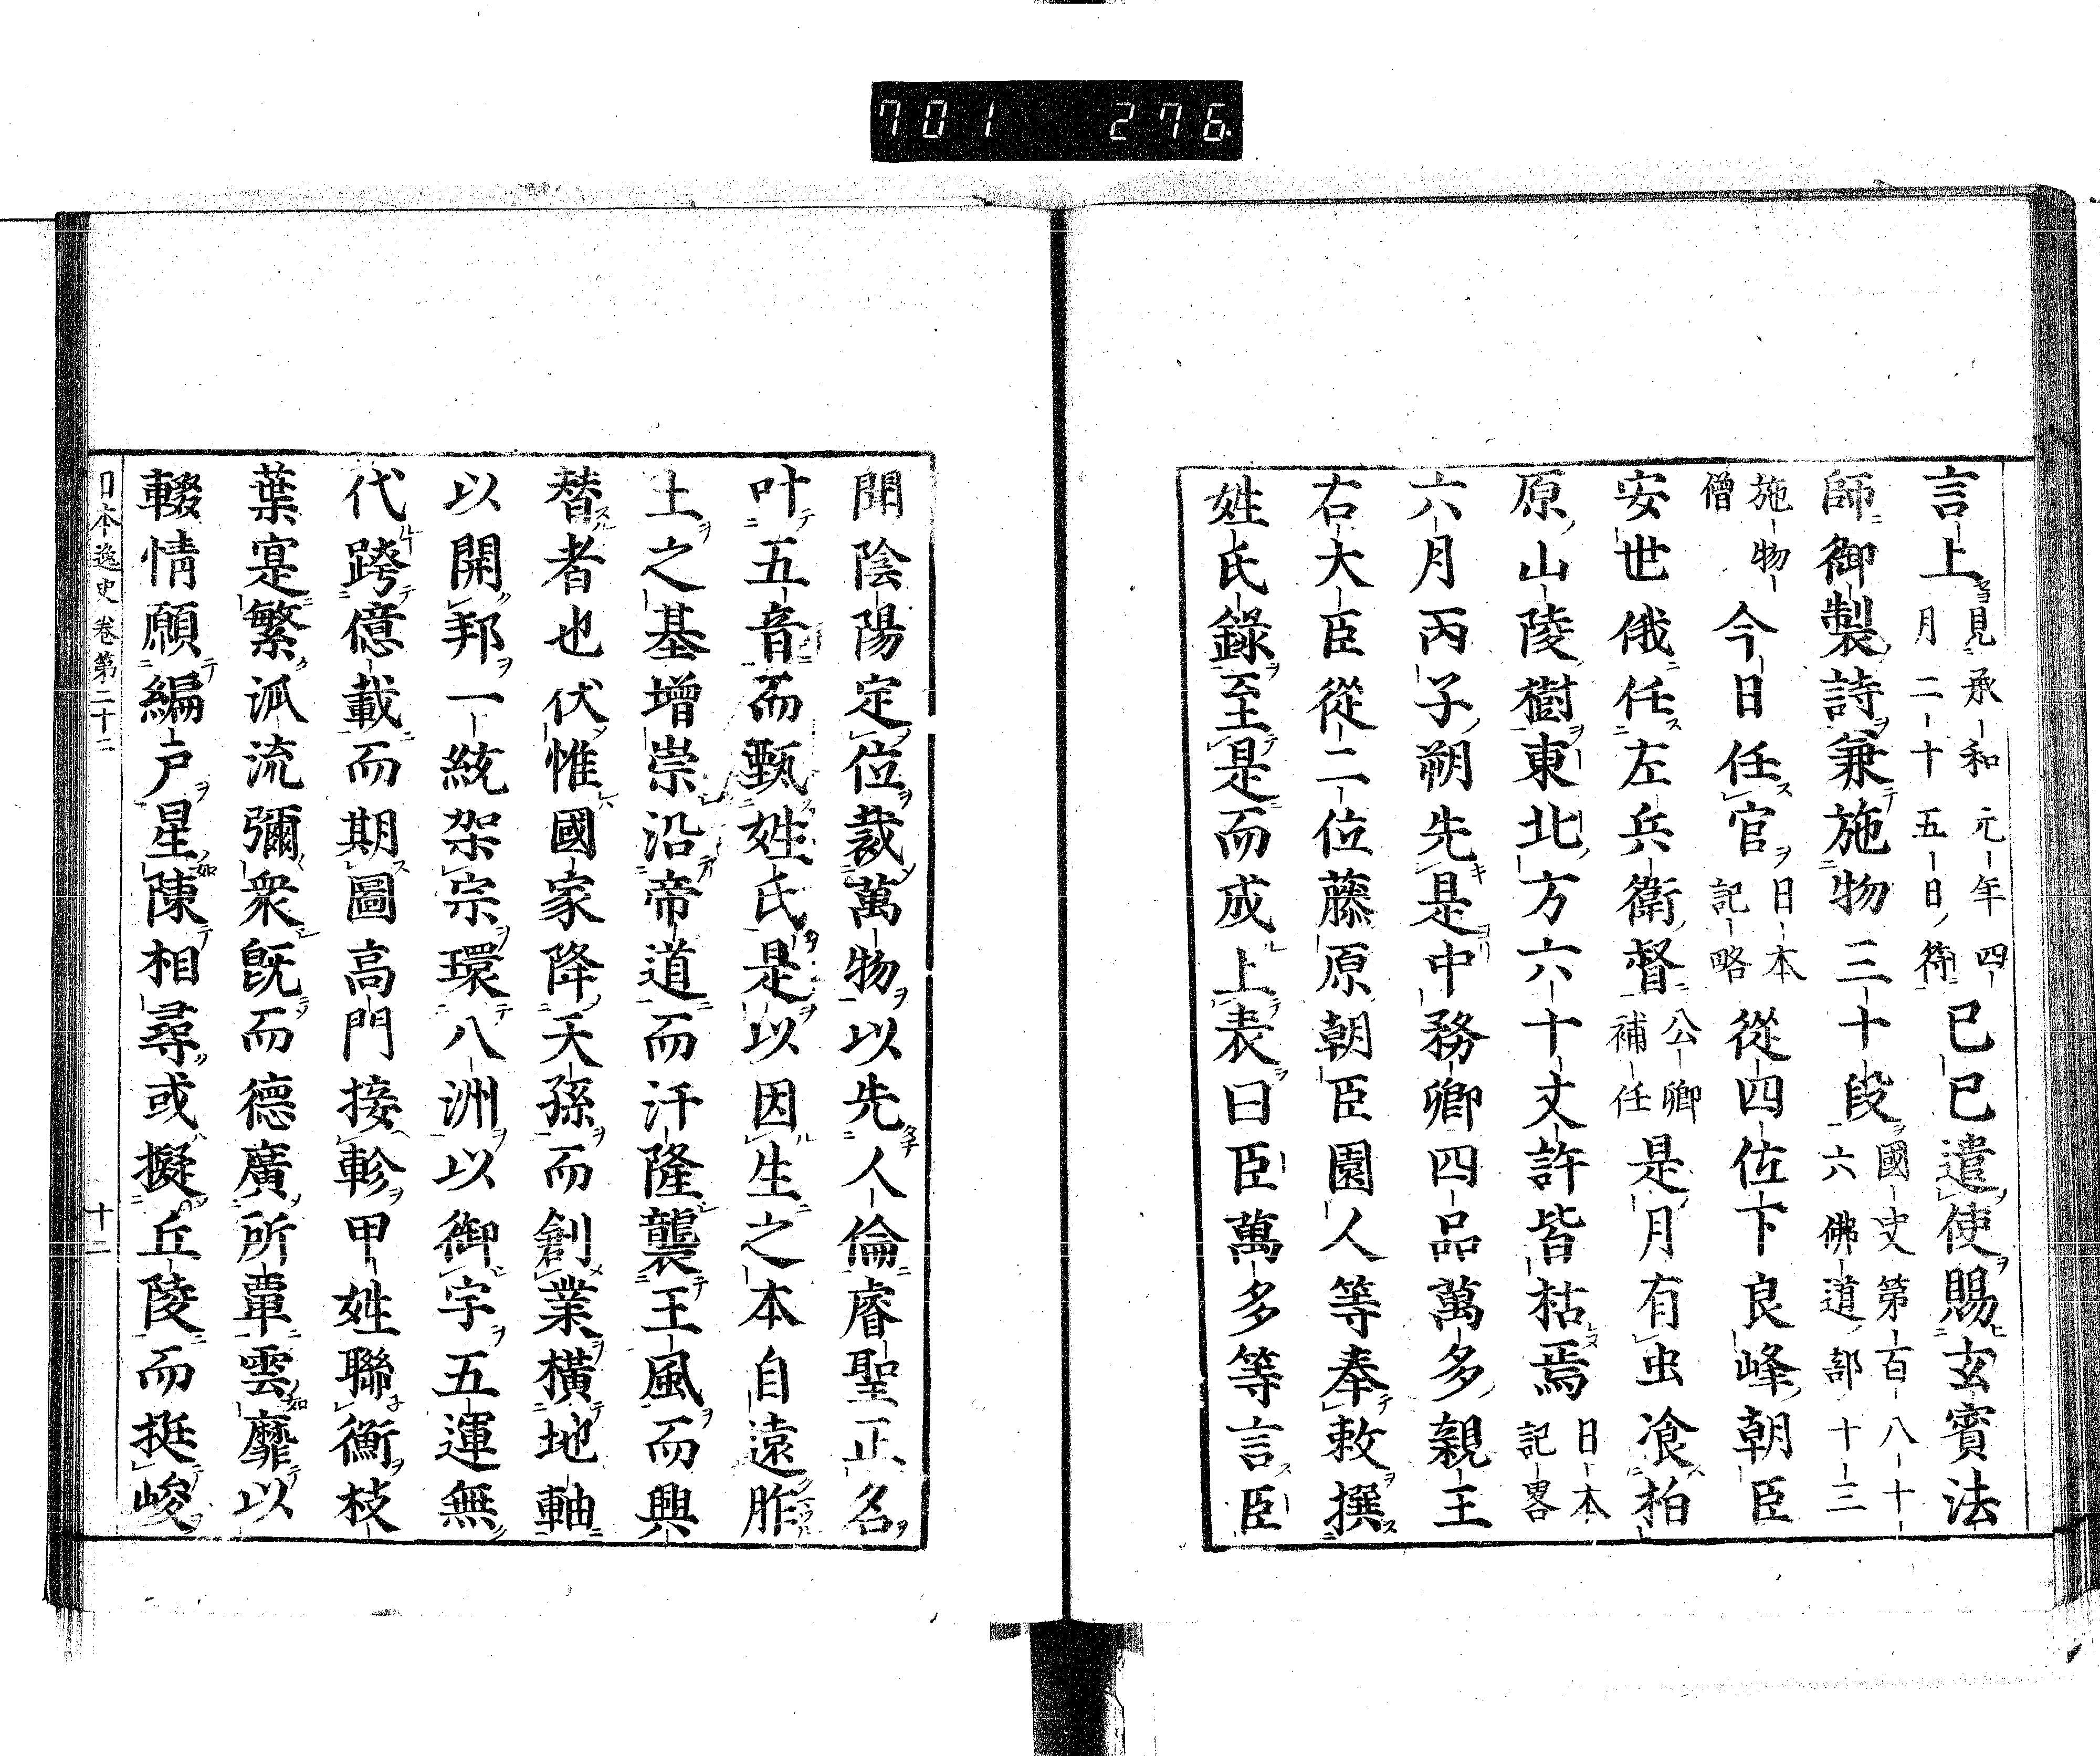 701 276
言上見承和元年四月二十五日符己巳遣使賜玄賓法
師御製詩兼施物三十段國史第百八十六佛道部十三
施物僧今日任官日本記略從四位下良峰朝臣
安世俄任左兵衛督公卿補任是月有虫飡柏
原山陵樹東北方六十丈許皆枯焉日本記畧
六月丙子朔先是中務卿四品萬多親王
右大臣從二位藤原朝臣園人等奉敕撰
姓氏錄至是而成上表曰臣萬多等言臣
聞陰陽定位裁萬物以先人倫睿聖正名
叶五音而甄姓氏是以因生之本自遠胙
土之基增崇沿帝道而汙隆襲王風而興
替者也伏惟國家降天孫而創業橫地軸
以開邦一統架宗環八洲以御宇五運無
代跨億載而期圖高門接軫甲姓聯衡枝
葉寔繁派流彌衆旣而德廣所覃雲靡以
輟情願編戸星陳相尋或擬丘陵而挺峻
日本逸史卷第二十二 十二